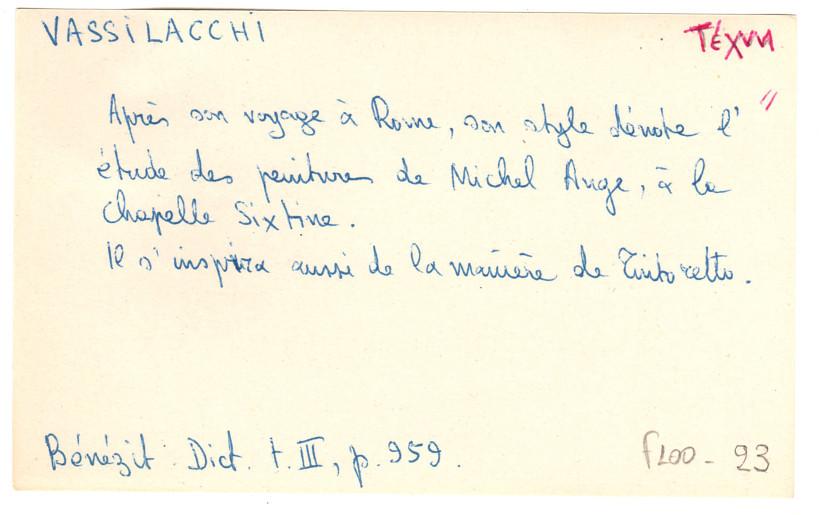 VASSILACCHI
ΤΈΧΝΗ
Après son voyage à Rome, son style dénote l' "
étude des peintures de Michel Ange, à la
Chapelle Sixtine.
Il s'inspira aussi de la manière de Tintoretto.
Bénézit : Dict. t. III, p. 959.
FLOO - 93